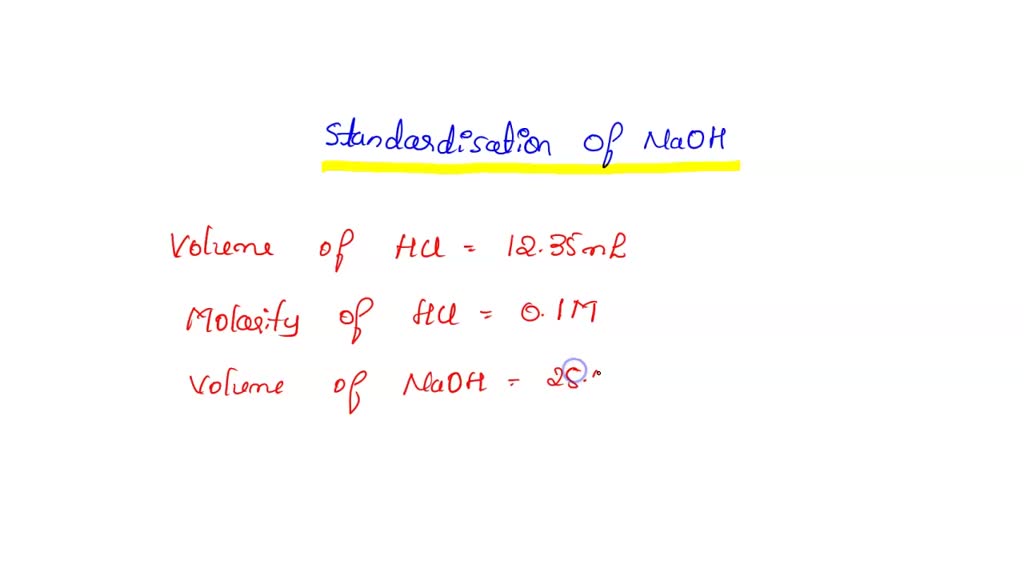 Standardisation of NaOH
Volume of HCl = 12.35mL
Molarity of HCl = 0.1M
Volume of NaOH =